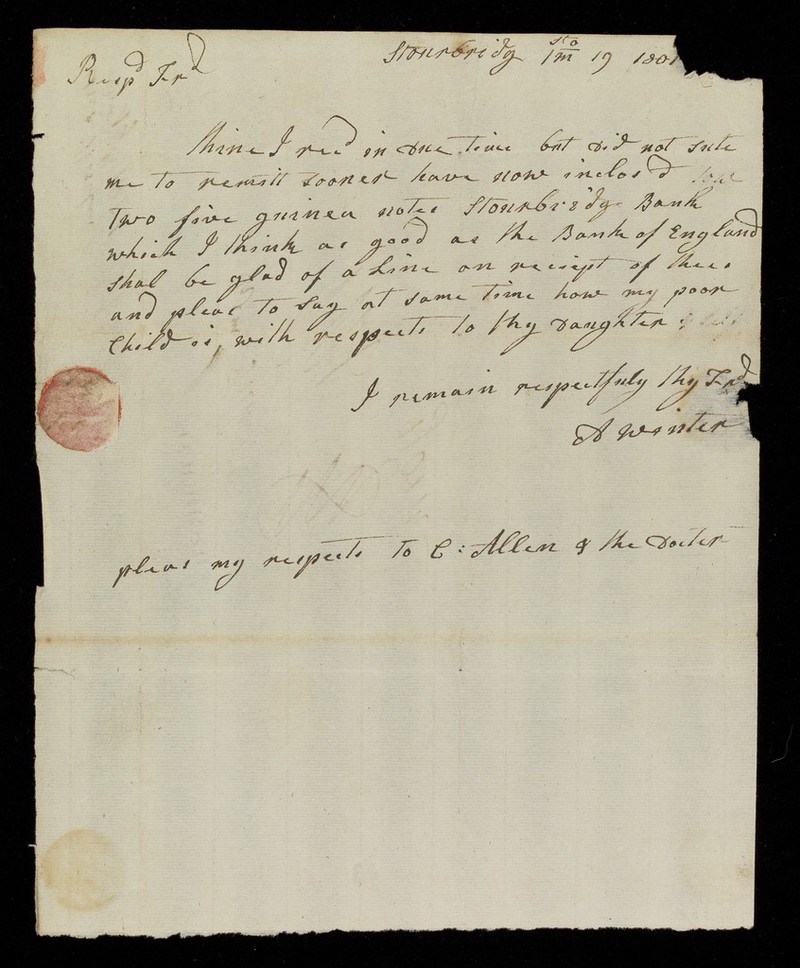 Stourbridg 1sto m 19 1801
Respd Frd
thine I recd in due time but did not sute
me to remitt sooner have now inclos'd
two five guinea notes Stourbridg Bank
which I think as good as the Bank of England
shal be glad of a Line on reciept of thee.
and pleac to say at same time how my poor
Child is, with respects to thy Daughter &
I remain respectfuly thy Frd
A Winter
pleas my respects to C: Allen & the Docter